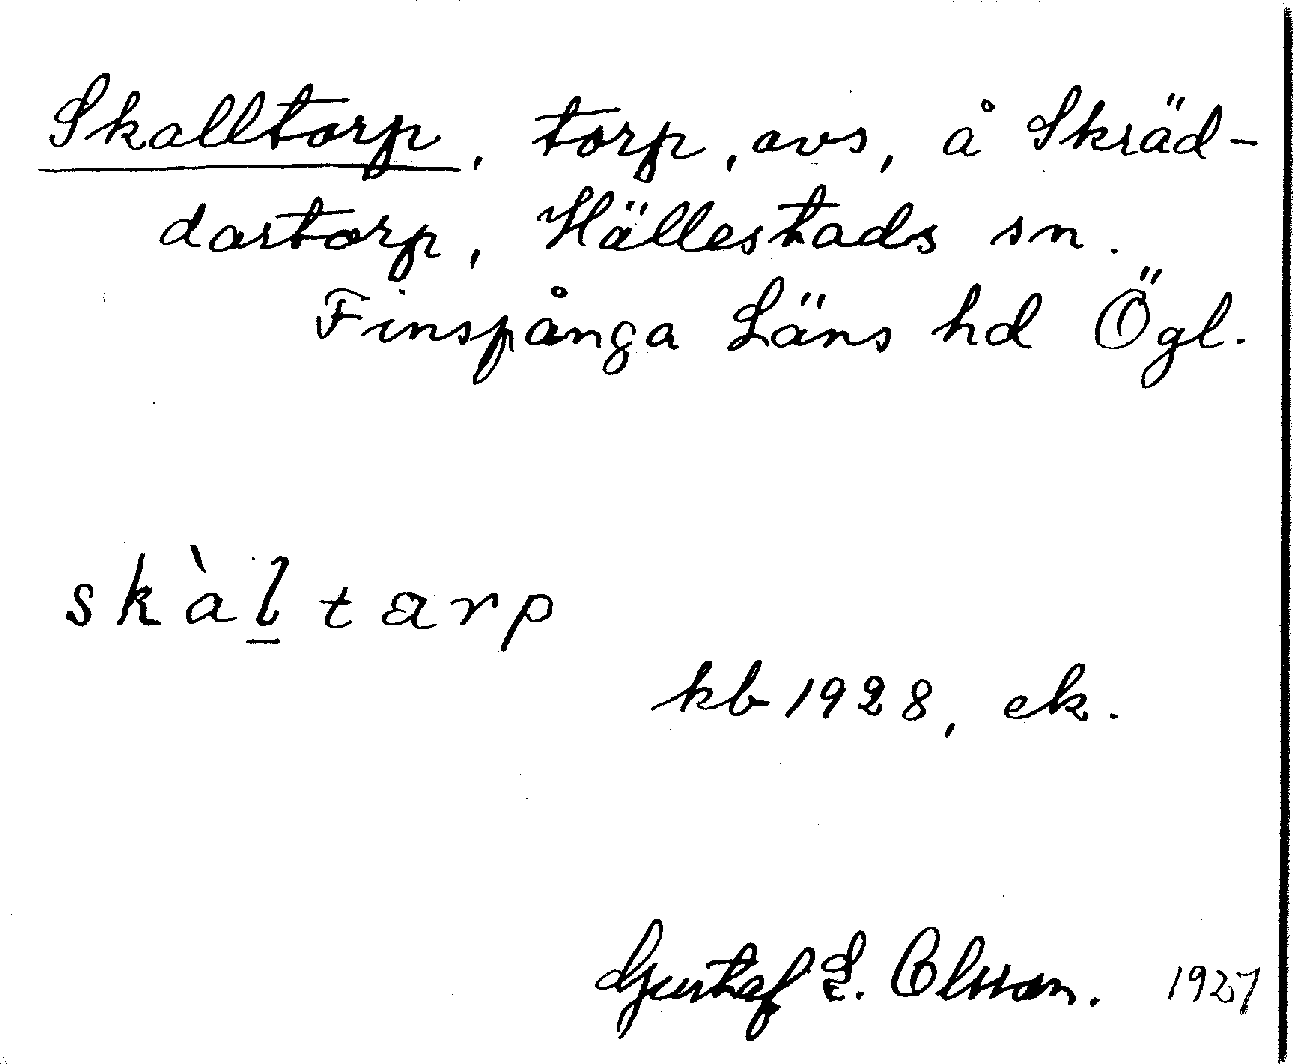 Skalltorp, torp, avs, å Skräd-
dartorp, Hällestads sn.
Finspånga Läns hd Ögl.
skàl̲tarp
kb 1928, ek.
Gustaf E. Olsson. 1927